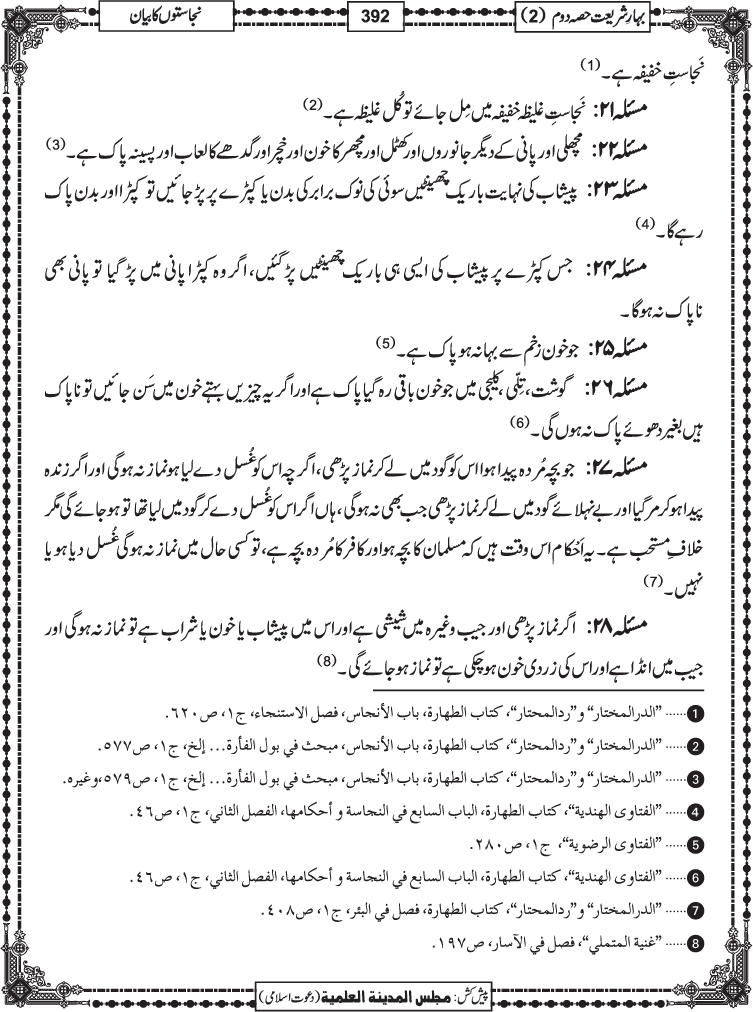 بہارِشریعت حصہ دوم (2)
392
نجاستوں کا بیان
نَجاستِ خفیفہ ہے۔ (1)
مسئلہ ۲۱: نَجاستِ غلیظہ خفیفہ میں مِل جائے تو کُل غلیظہ ہے۔ (2)
مسئلہ ۲۲: مچھلی اور پانی کے دیگر جانوروں اور کھٹمل اور مچھر کا خون اور خچر اور گدھے کا لعاب اور پسینہ پاک ہے۔ (3)
مسئلہ ۲۳: پیشاب کی نہایت باریک چھینٹیں سوئی کی نوک برابر کی بدن یا کپڑے پر پڑ جائیں تو کپڑا اور بدن پاک
رہے گا۔ (4)
مسئلہ ۲۴: جس کپڑے پر پیشاب کی ایسی ہی باریک چھینٹیں پڑ گئیں، اگر وہ کپڑا پانی میں پڑ گیا تو پانی بھی
ناپاک نہ ہوگا۔
مسئلہ ۲۵: جو خون زخم سے بہا نہ ہو پاک ہے۔ (5)
مسئلہ ۲۶: گوشت، تِلّی، کلیجی میں جو خون باقی رہ گیا پاک ہے اور اگر یہ چیزیں بہتے خون میں سَن جائیں تو ناپاک
ہیں بغیر دھوئے پاک نہ ہوں گی۔ (6)
مسئلہ ۲۷: جو بچہ مُردہ پیدا ہوا اس کو گود میں لے کر نماز پڑھی، اگرچہ اس کو غُسل دے لیا ہو نماز نہ ہوگی اور اگر زندہ
پیدا ہو کر مر گیا اور بے نہلائے گود میں لے کر نماز پڑھی جب بھی نہ ہوگی، ہاں اگر اس کو غُسل دے کر گود میں لیا تھا تو ہو جائے گی مگر
خلافِ مستحب ہے۔ یہ اَحْکام اس وقت ہیں کہ مسلمان کا بچہ ہو اور کافر کا مُردہ بچہ ہے، تو کسی حال میں نماز نہ ہوگی غُسل دیا ہو یا
نہیں۔ (7)
مسئلہ ۲۸: اگر نماز پڑھی اور جیب وغیرہ میں شیشی ہے اور اس میں پیشاب یا خون یا شراب ہے تو نماز نہ ہوگی اور
جیب میں انڈا ہے اور اس کی زردی خون ہو چکی ہے تو نماز ہو جائے گی۔ (8)
1 ...... "الدرالمختار" و"ردالمحتار"، كتاب الطهارة، باب الأنجاس، فصل الاستنجاء، ج١، ص٦٢٠.
2 ...... "الدرالمختار" و"ردالمحتار"، كتاب الطهارة، باب الأنجاس، مبحث في بول الفأرة... إلخ، ج١، ص٥٧٧.
3 ...... "الدرالمختار" و"ردالمحتار"، كتاب الطهارة، باب الأنجاس، مبحث في بول الفأرة... إلخ، ج١، ص٥٧٩، وغيره.
4 ...... "الفتاوى الهندية"، كتاب الطهارة، الباب السابع في النجاسة و أحكامها، الفصل الثاني، ج١، ص٤٦.
5 ...... "الفتاوى الرضوية"، ج١، ص٢٨٠.
6 ...... "الفتاوى الهندية"، كتاب الطهارة، الباب السابع في النجاسة و أحكامها، الفصل الثاني، ج١، ص٤٦.
7 ...... "الدرالمختار" و"ردالمحتار"، كتاب الطهارة، فصل في البئر، ج١، ص٤٠٨.
8 ...... "غنية المتملي"، فصل في الآسار، ص١٩٧.
پیش کش: مجلس المدينة العلمية (دعوت اسلامی)